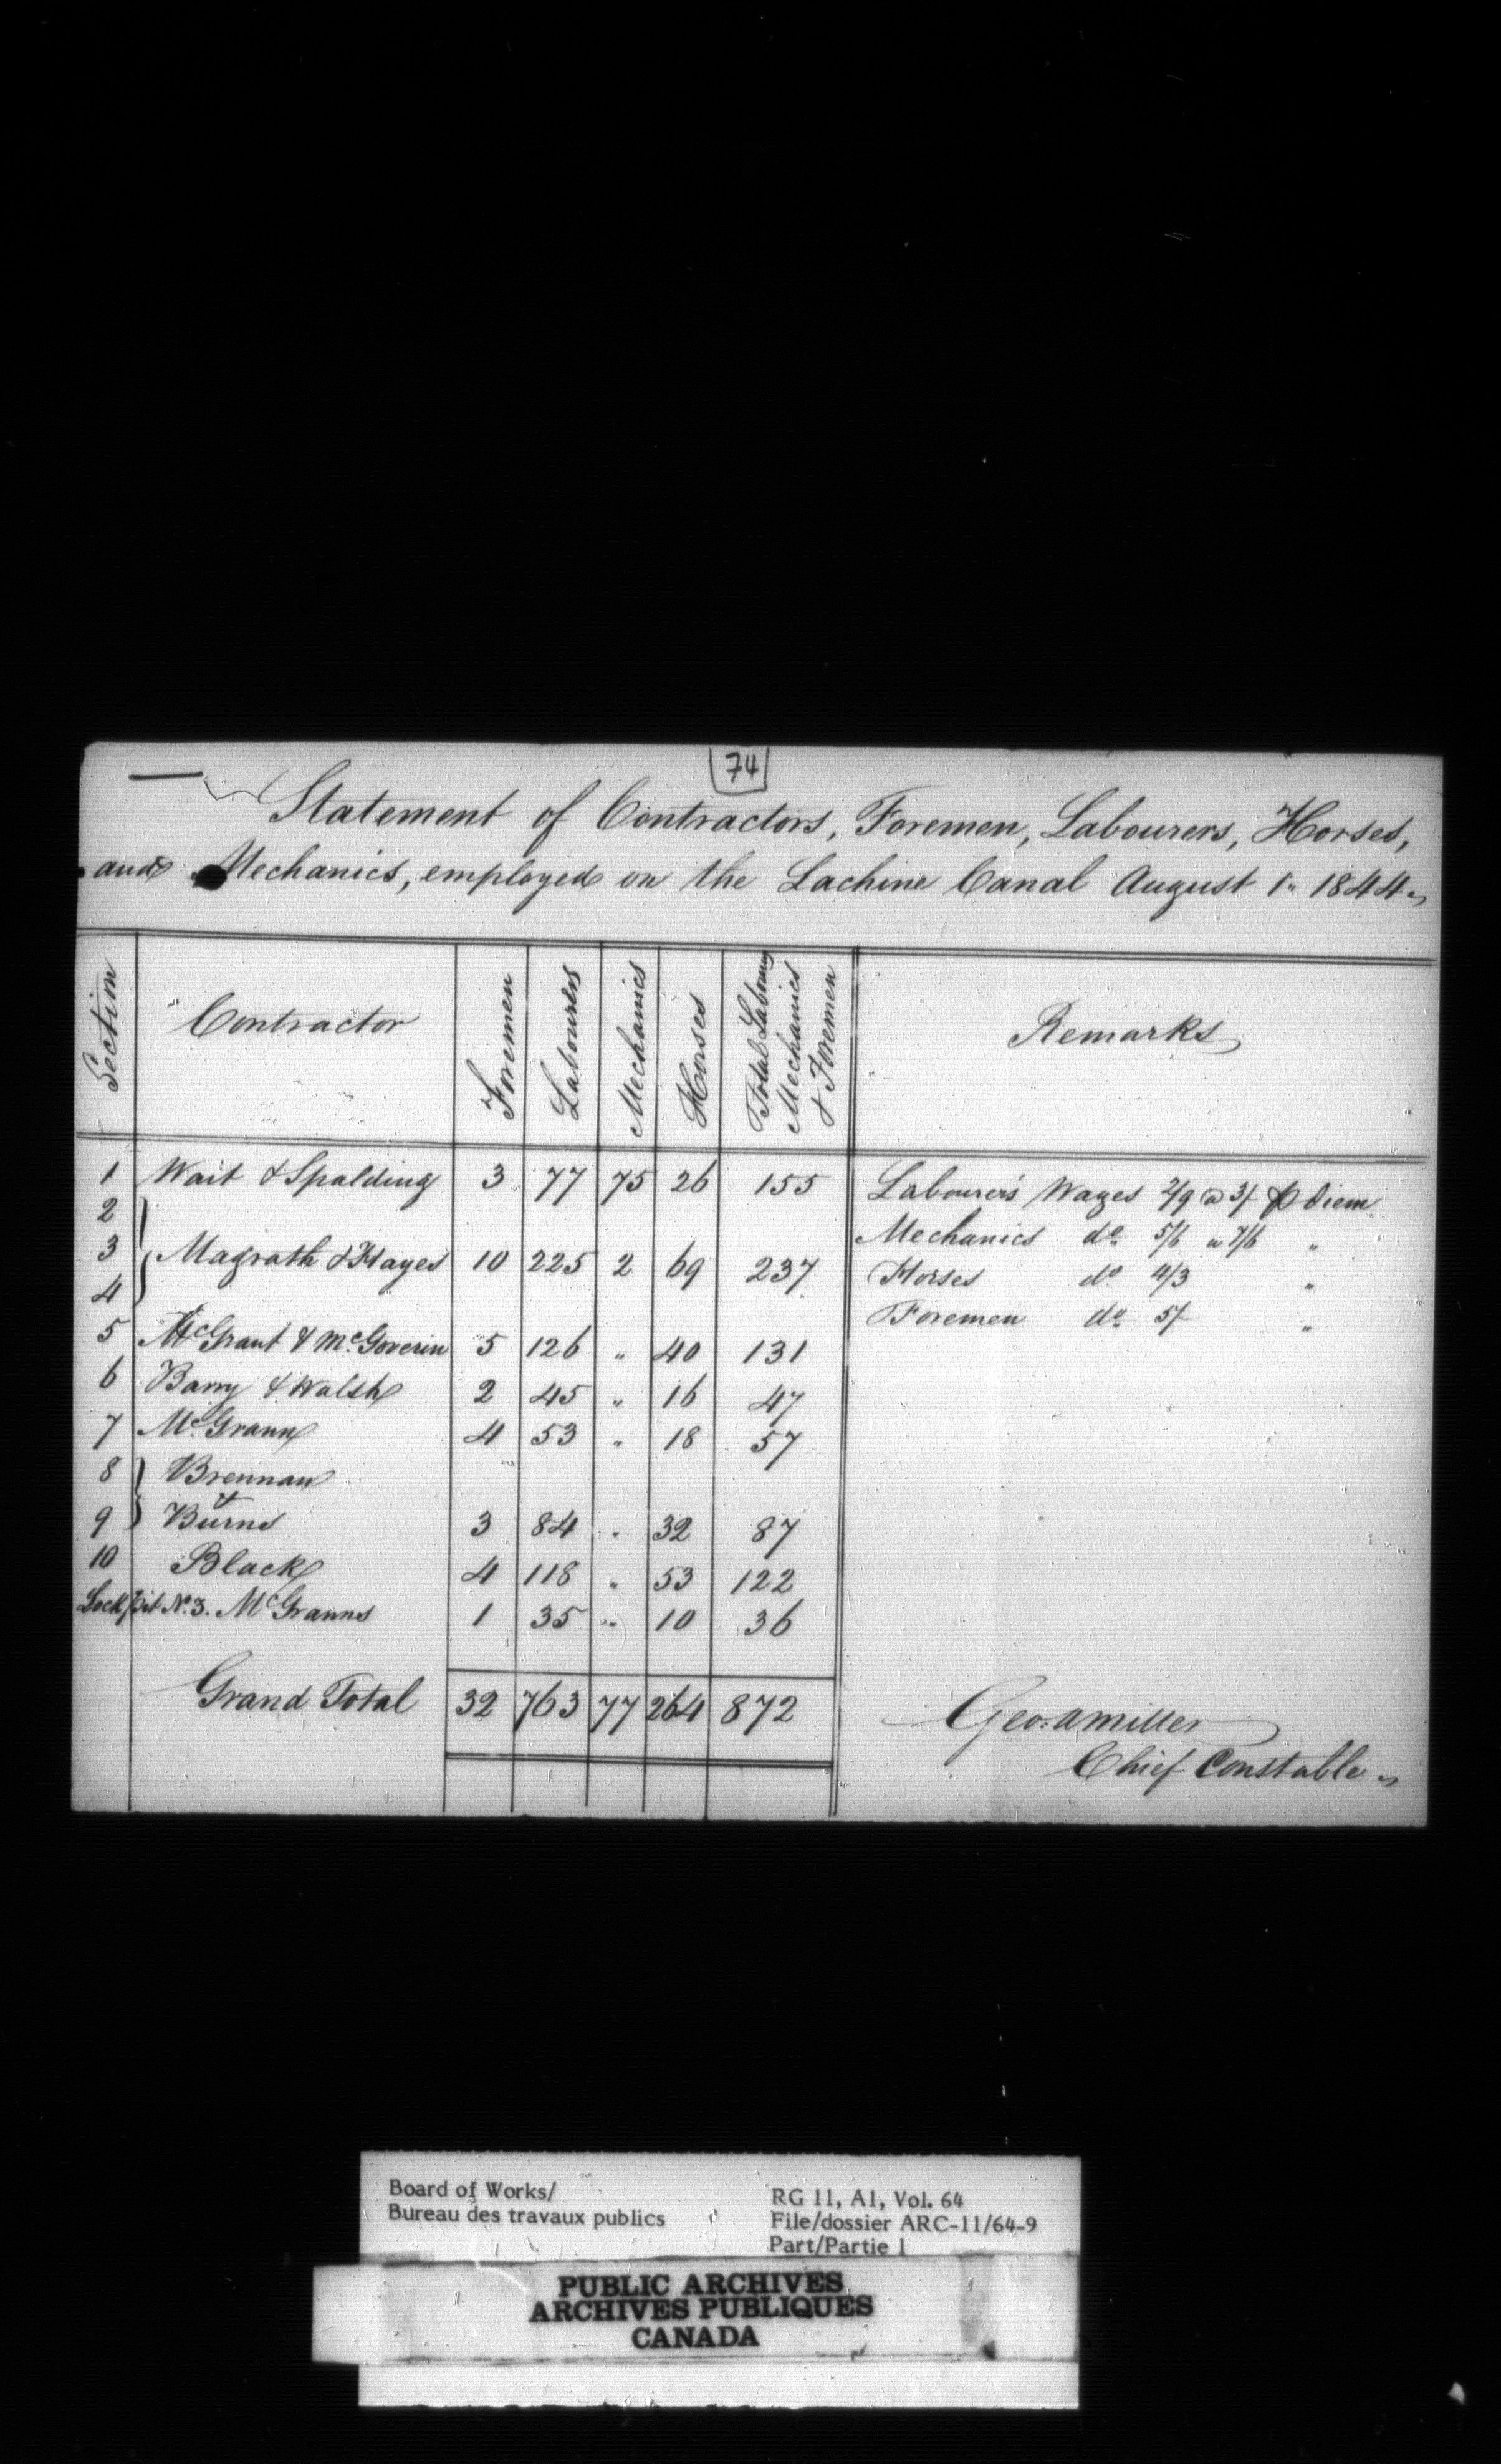 74
Statement of Contractors, Foremen, Labourers, Horses,
and Mechanics, employed on the Lachine Canal August 1" 1844
Section Contractor Foremen Labourers Mechanics Horses Total Labourg Mechanics & Foremen Remarks
1 Wait & Spalding 3 77 75 26 155 Labourers Wages 2/9 @ 3/ P Diem
2 Mechanics do 5/6 a 7/6 "
3 Magrath & Hayes 10 225 2 69 237 Horses do 4/3 "
4 Foremen do 5/ "
5 McGrant & McGoverin 5 126 " 40 131
6 Barry & Walsh 2 45 " 16 47
7 McGrann 4 53 " 18 57
8 Brennan
&
9 Burns 3 84 " 32 87
10 Black 4 118 " 53 122
Lock Pit No. 3. McGranns 1 35 " 10 36
Grand Total 32 763 77 264 872
Geo: A Miller
Chief Constable
Board of Works/
Bureau des travaux publics
RG 11, A1, Vol. 64
File/dossier ARC-11/64-9
Part/Partie 1
PUBLIC ARCHIVES
ARCHIVES PUBLIQUES
CANADA